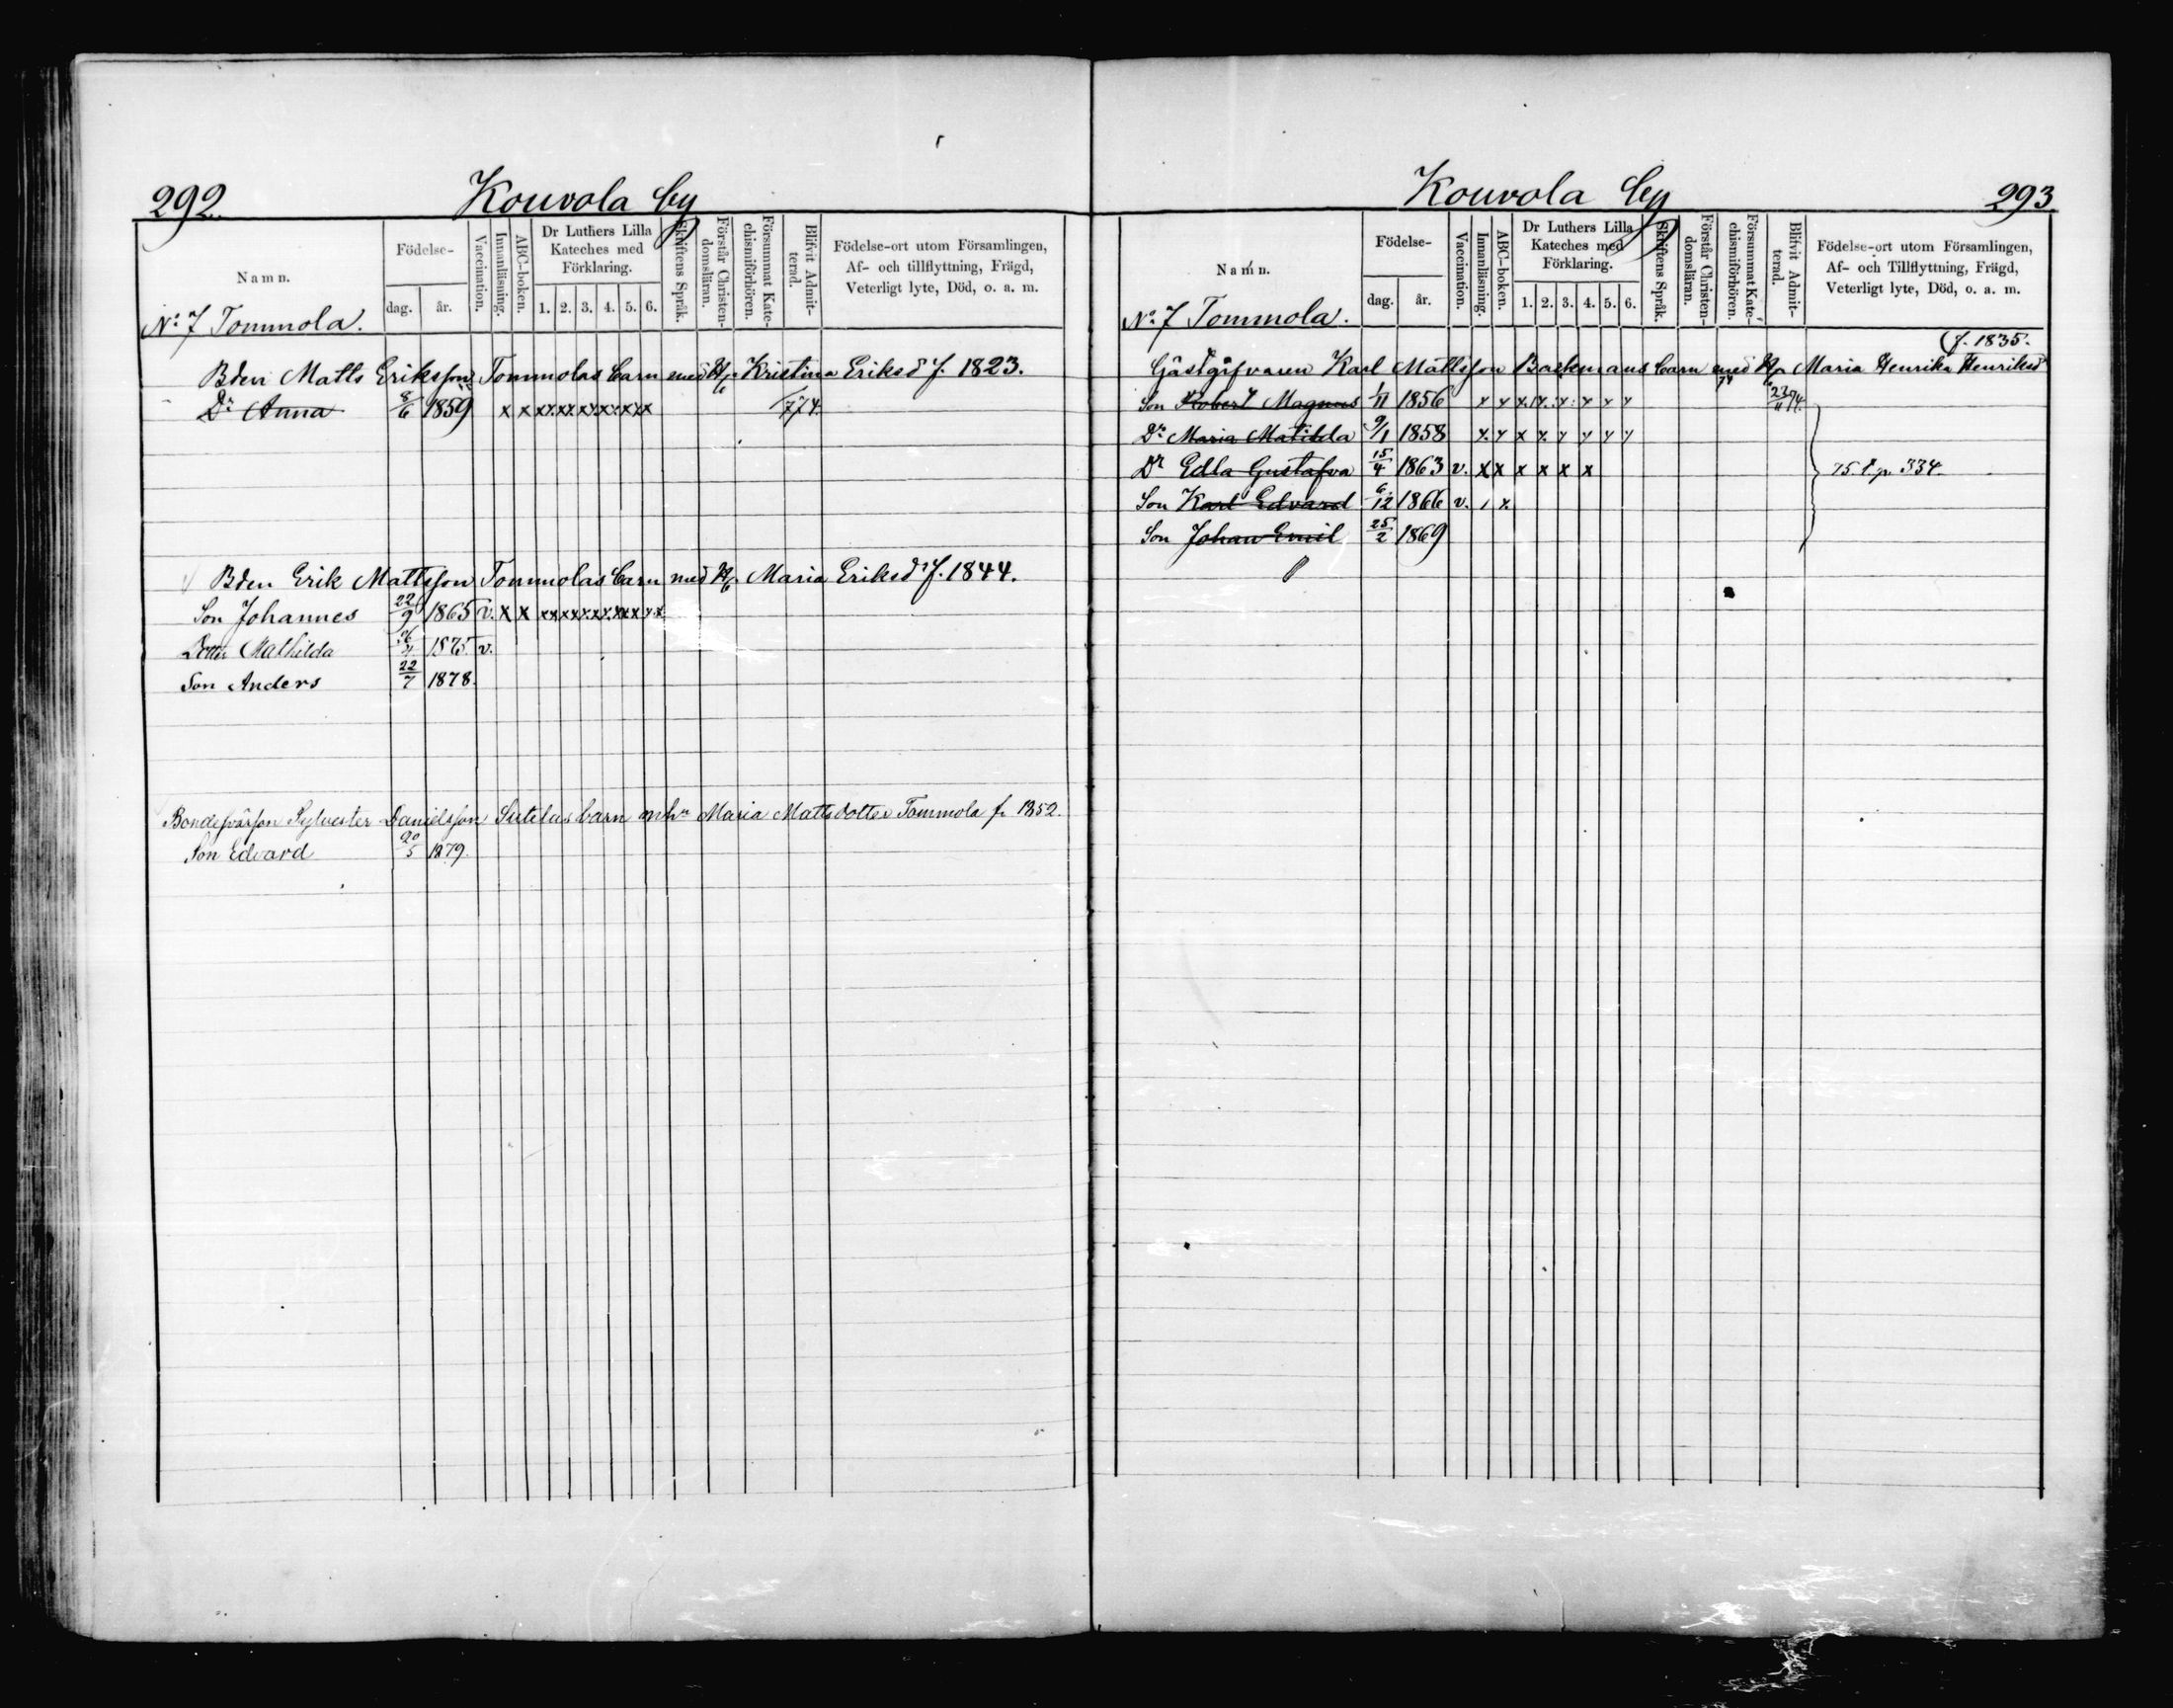 292.
Kouvola by
Namn.
Födelse-
dag.
år.
Vaccination.
Innanläsning.
ABC-boken.
Dr Luthers Lilla Kateches med Förklaring.
1. 2. 3. 4. 5. 6.
Skriftens Språk.
Förstår Christendomsläran.
Försummat Katechismiförhören.
Blifvit Admitterad.
Födelse-ort utom Församlingen,
Af- och tillflyttning, Frägd,
Veterligt lyte, Död, o. a. m.
No 7 Tommola.
Bden Matts Eriksson Tommolas barn med H. Kristina Eriksdr f. 1823.
Dr Anna 8/6 1859 x x x x x x x x x x x x 74.
Bden Erik Mattsson Tommolas barn med H. Maria Eriksdr f. 1844.
Son Johannes 22/9 1865 v. x x x x x x x x x x x x
Dotter Mathilda 1875 v.
Son Anders 22/7 1878.
Sylvester Danielsson barn m hu Maria Mattsdotter Tommola f. 1852.
Son Edvard 20/5 1879.
Kouvola by
293
Namn.
Födelse-
dag.
år.
Vaccination.
Innanläsning.
ABC-boken.
Dr Luthers Lilla Kateches med Förklaring.
1. 2. 3. 4. 5. 6.
Skriftens Språk.
Förstår Christendomsläran.
Försummat Katechismiförhören.
Blifvit Admitterad.
Födelse-ort utom Församlingen,
Af- och Tillflyttning, Frägd,
Veterligt lyte, Död, o. a. m.
No 7 Tommola.
(f. 1835.
Gästgifvaren Karl Mattsson Backmans barn med H. Maria Henrika Henriksdr
Son Robert Magnus 1/11 1856 x x x x x x x x 22/11 74.
Dr Maria Matilda 9/1 1858 x x x x x x x x
Dr Edla Gustafva 15/4 1863 v. x x x x x x 75. p. 334.
Son Karl Edvard 6/12 1866 v. x
Son Johan Emil 25/2 1869